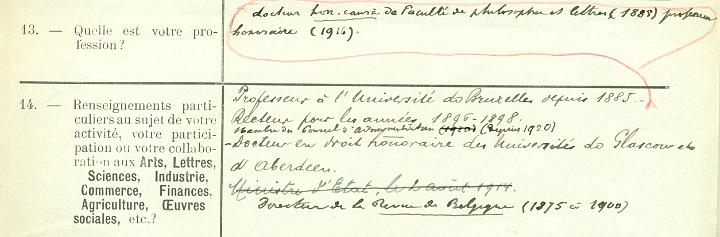 docteur hon. causa de Faculté de philosophie et lettres (1889) professeur
13. — Quelle est votre pro-
fession ?
honoraire (1916).
14. — Renseignements parti-
culiers au sujet de votre
activité, votre partici-
pation ou votre collabo-
ration aux Arts, Lettres,
Sciences, Industrie,
Commerce, Finances,
Agriculture, Œuvres
sociales, etc.?
Professeur à l'Université de Bruxelles depuis 1885.
Recteur pour les années 1896-1898.
Membre du Conseil d'administration (1920) (depuis 1920)
Docteur en droit honoraire des Universités de Glascow et
d'Aberdeen.
Ministre d'Etat, le 2 août 1914.
Directeur de la Revue de Belgique (1875 à 1900)